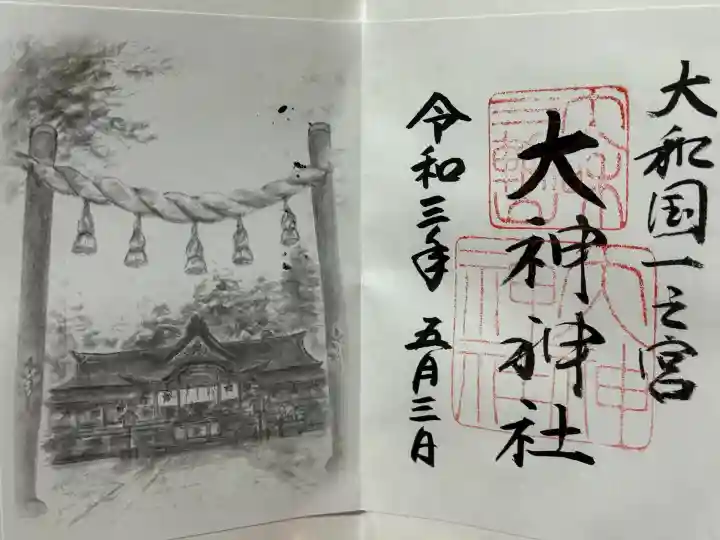 大和国一之宮
大神神社
令和三年 五月三日
大神
神社